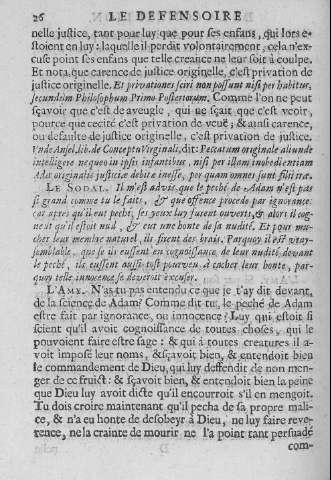 26 LE DEFENSOIRE
nelle justice, tant pour luy que pour ses enfans, qui lors e-
stoient en luy: laquelle il perdit volontairement, cela n'ex-
cuse point ses enfans que telle creance ne leur soit à coulpe.
Et nota que carence de justice originelle, c'est privation de
justice originelle. Et privationes sciri non possunt nisi per habitus,
secundum Philosophum Primo Posteriorum. Comme l'on ne peut
sçavoir que c'est de aveugle, qui ne sçait que c'est veoir,
pource que cecité c'est privation de veuë; & ainsi carence,
ou defaulte de justice originelle, c'est privation de justice
Vnde Ansel. lib. de Conceptu Virginali, dit: Peccatum originale aliunde
intelligere nequeo in ipsis infantibus, nisi per illam inobedientiam
Adæ originalis justiciæ debitæ inesse, per quam omnes sunt filii iræ.
LE SODAL. Il m'est advis que le peché de Adam n'est pas
si grand comme tu le faits, & que offence procede par ignorance:
car apres qu'il eut peché, ses yeux luy furent ouverts, & alors il cog-
neut qu'il estoit nud, & eut une honte de sa nudité. Et pour mu-
cher leur membre naturel, ils firent des brais. Parquoy il est vray-
semblable, que se ils eussent en cognoissance de leur nudité devant
le peché, ils eussent aussi-tost pourveu à cacher leur honte, par-
quoy telle innocence se devoit excuser.
L'AME. N'as tu pas entendu ce que je t'ay dit devant,
de la science de Adam? Comme dit tu, le peché de Adam
estre fait par ignorance, ou innocence? Luy qui estoit si
scient qu'il avoit cognoissance de toutes choses, qui le
pouvoient faire estre sage: & qui à toutes creatures il a-
voit imposé leur noms, & sçavoit bien, & entendoit bien
le commandement de Dieu, qui luy deffendit de non men-
ger de ce fruist: & sçavoit bien, & entendoit bien la peine
que Dieu luy avoit dicte qu'il encourroit s'il en mengoit.
Tu dois croire maintenant qu'il pecha de sa propre mali-
ce, & n'a eu honte de desobeyr à Dieu, ne luy faire reve-
rence, ne la crainte de mourir ne l'a point tant persuadé
com-